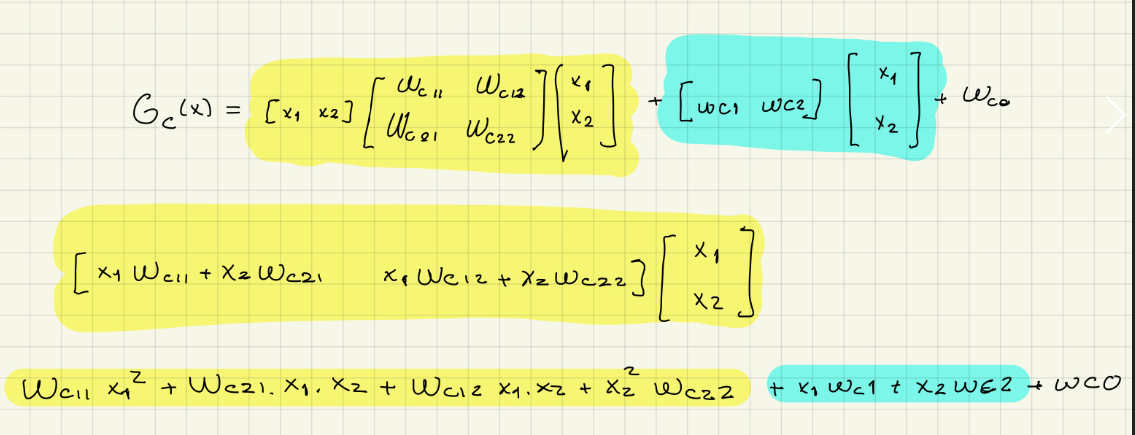 G_c(x) = [x1 x2] [w_c11 w_c12; w_c21 w_c22] [x1; x2] + [wc1 wc2] [x1; x2] + w_c0
[x1 w_c11 + x2 w_c21   x1 w_c12 + x2 w_c22] [x1; x2]
w_c11 x1² + w_c21 . x1 . x2 + w_c12 x1 . x2 + x2² w_c22 + x1 wc1 + x2 wc2 + wc0